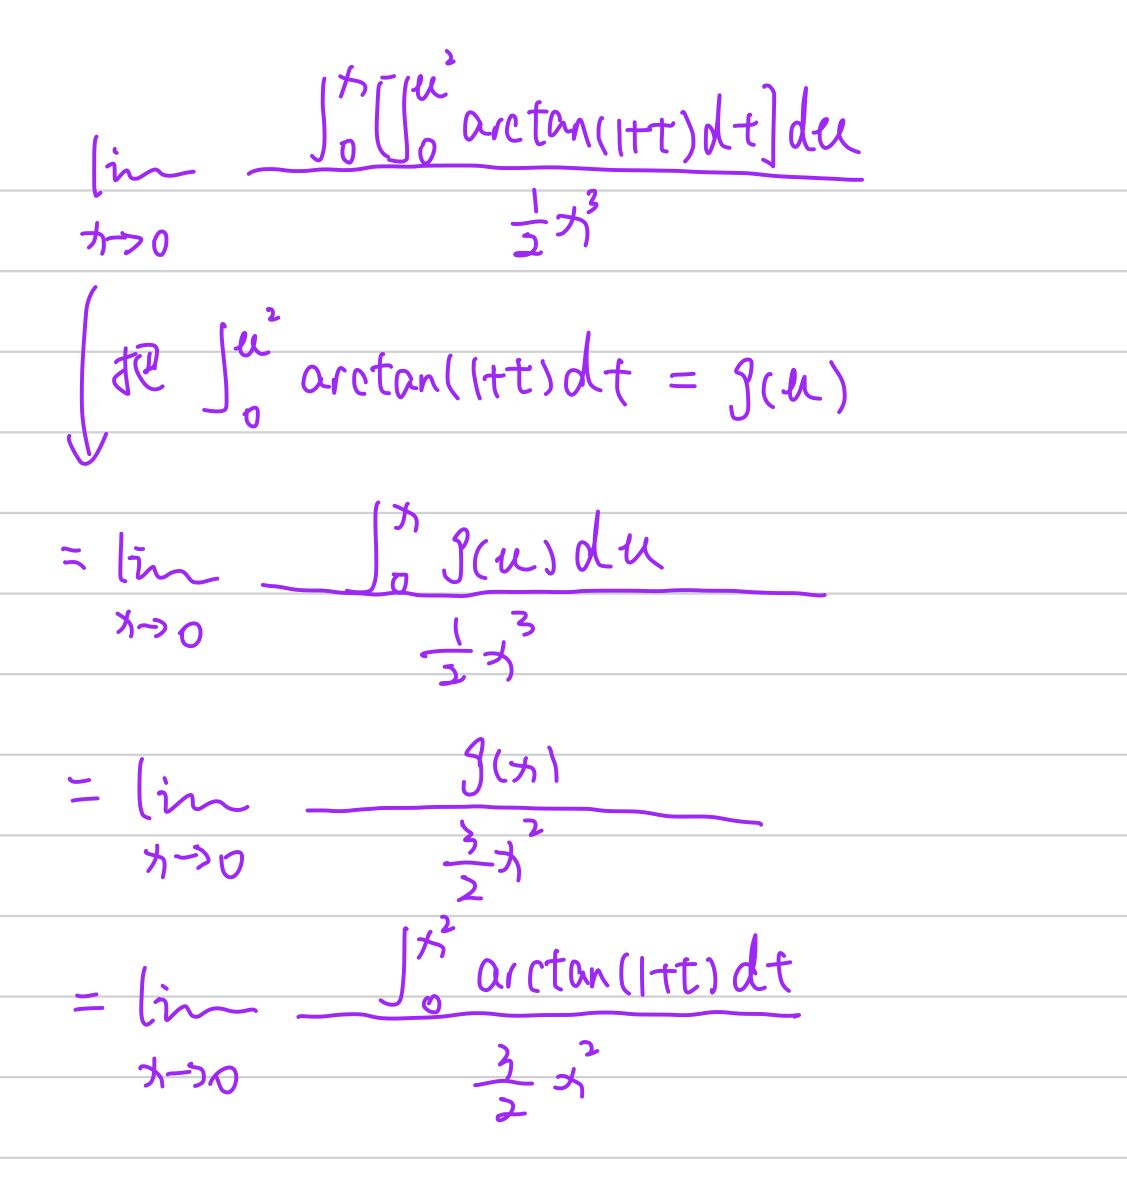 lim x→0 ∫₀ˣ [∫₀^{u²} arctan(1+t)dt]du / (1/2 x³)
把 ∫₀^{u²} arctan(1+t)dt = g(u)
= lim x→0 ∫₀ˣ g(u)du / (1/2 x³)
= lim x→0 g(x) / (3/2 x²)
= lim x→0 ∫₀^{x²} arctan(1+t)dt / (3/2 x²)